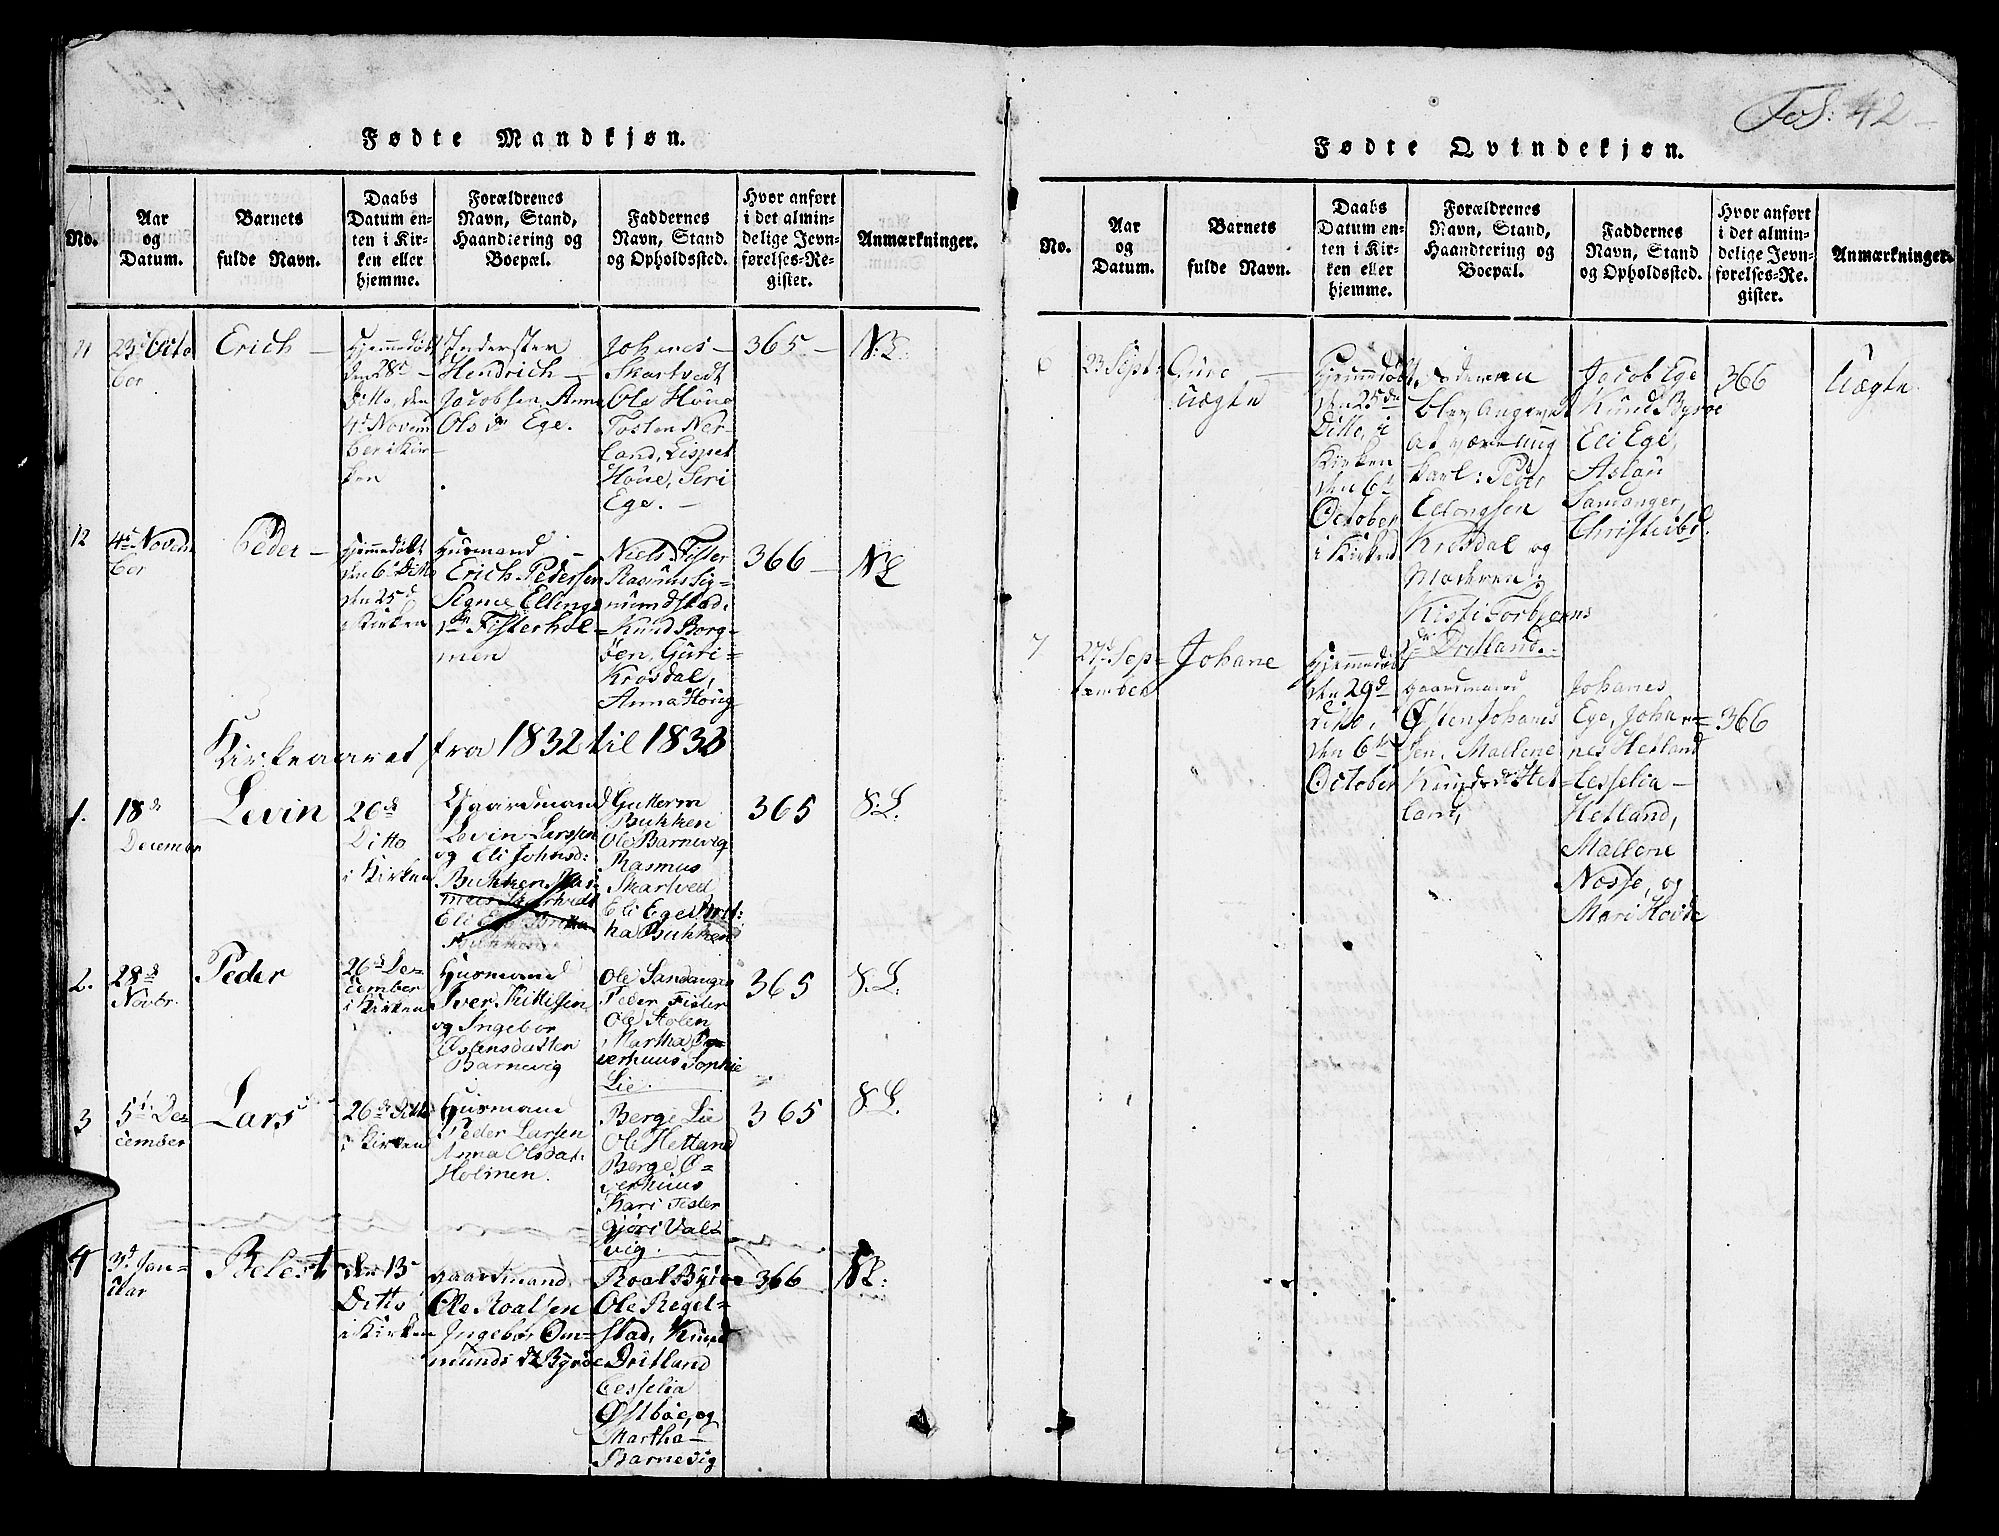 Fol: 42
Fødte Mandkjøn.
No.
Aar
og
Datum.
Barnets
fulde Navn.
Daabs
Datum en-
ten i Kir-
ken eller
hjemme.
Forældrenes
Navn, Stand,
Haandtering og
Boepæl.
Faddernes
Navn, Stand
og Opholdssted.
Hvor anført
i det almin-
delige Jevn-
førelses-Re-
gister.
Anmærkninger.
11
23d Octo
ber
Erich
Hjemmedøbt
den 28d
Ditto, den
4d Novem
ber i Kir-
ken
Inderster
Hendrich
Jacobsen Anna
Ols dr Ege.
Johanes
Skartvedt
Ole Høue
Tosten Ner-
land, Lispet
Høue, Siri
Ege.
365
N:L:
12
4d Novem
ber
Peder
Hjemmedøbt
den 6d Ditto
den 25d
i Kirken
Husmand
Erich Pedersen
Signe Ellings
dr Fisterhol-
men
Niels Fister
Rasmus Sig-
mundstad,
Knud Borg-
øen, Guri
Krosdal,
Anna Houg
366
NL
Kirkeaaret fra 1832 til 1833
1.
18d
December
Levin
26d
Ditto
i Kirken
Gaardmand
Levin Larssen
og Eli Johnsd:
Bukken
Eli Ege
Bukken
Guttorm
Bukken
Ole Barnevig
Rasmus
Skartved
Eli Ege Brit-
ha Bukken
365
S:L.
2.
28d
Novbr.
Peder
26d De-
cember
i Kirken
Husmand
Iver Kittilsen
og Ingebor
Østensdatter
Barnevig
Ole Sandanger
Peder Fister
Ole Holen
Martha O-
verhuus Sophie
Lie.
365
S.L.
3
5d De-
cember
Lars
26d Ditto
i Kirken
Husmand
Peder Larsen
Anna Olsdat:
Holmen.
Berge Lie
Ole Hetland
Berge O-
verhuus
Kari Fister
Gjøri Val-
vig.
365
S.L.
4
3d Jan-
uar
Belest
den 13
Ditto
i Kirken
gaardmand
Ole Roalsen
Ingebor Om-
munds dr Byrøe
Roal Byrøe
Ole Regel-
stad, Knud
Dritland
Cesselia
Østbøe, og
Martha
Barnevig
366
NL:
Fødte Qvindekjøn.
No.
Aar
og
Datum.
Barnets
fulde Navn.
Daabs
Datum en-
ten i Kir-
ken eller
hjemme.
Forældrenes
Navn, Stand,
Haandtering og
Boepæl.
Faddernes
Navn, Stand
og Opholdssted.
Hvor anført
i det almin-
delige Jevn-
førelses-Re-
gister.
Anmærkninger.
6
23 Sept:
Gure
uægte
Hjemmedøbt
den 25de
Ditto, i
Kirken
den 6te
October
i Kirken
Faderen
blev angivet
at være ung
karl: Peder
Ellingsen
Krosdal og
Moderen
Kisti Torbjørns
dr Dritland.
Jacob Ege
Knud Byrøe
Eli Ege,
Aslau
Sandanger,
366
Uægte
7
27d Sep-
tember
Johane
Hjemmedøbt
den 29d
Ditto,
den 6te
October
gaardmand
Østen Johanes
sen, Mallene
Knudsdr Het-
land,
Johanes
Ege, Johan-
nes Hetland
Cesselia
Hetland,
Mallene
Nosse, og
Mari Hovde
366